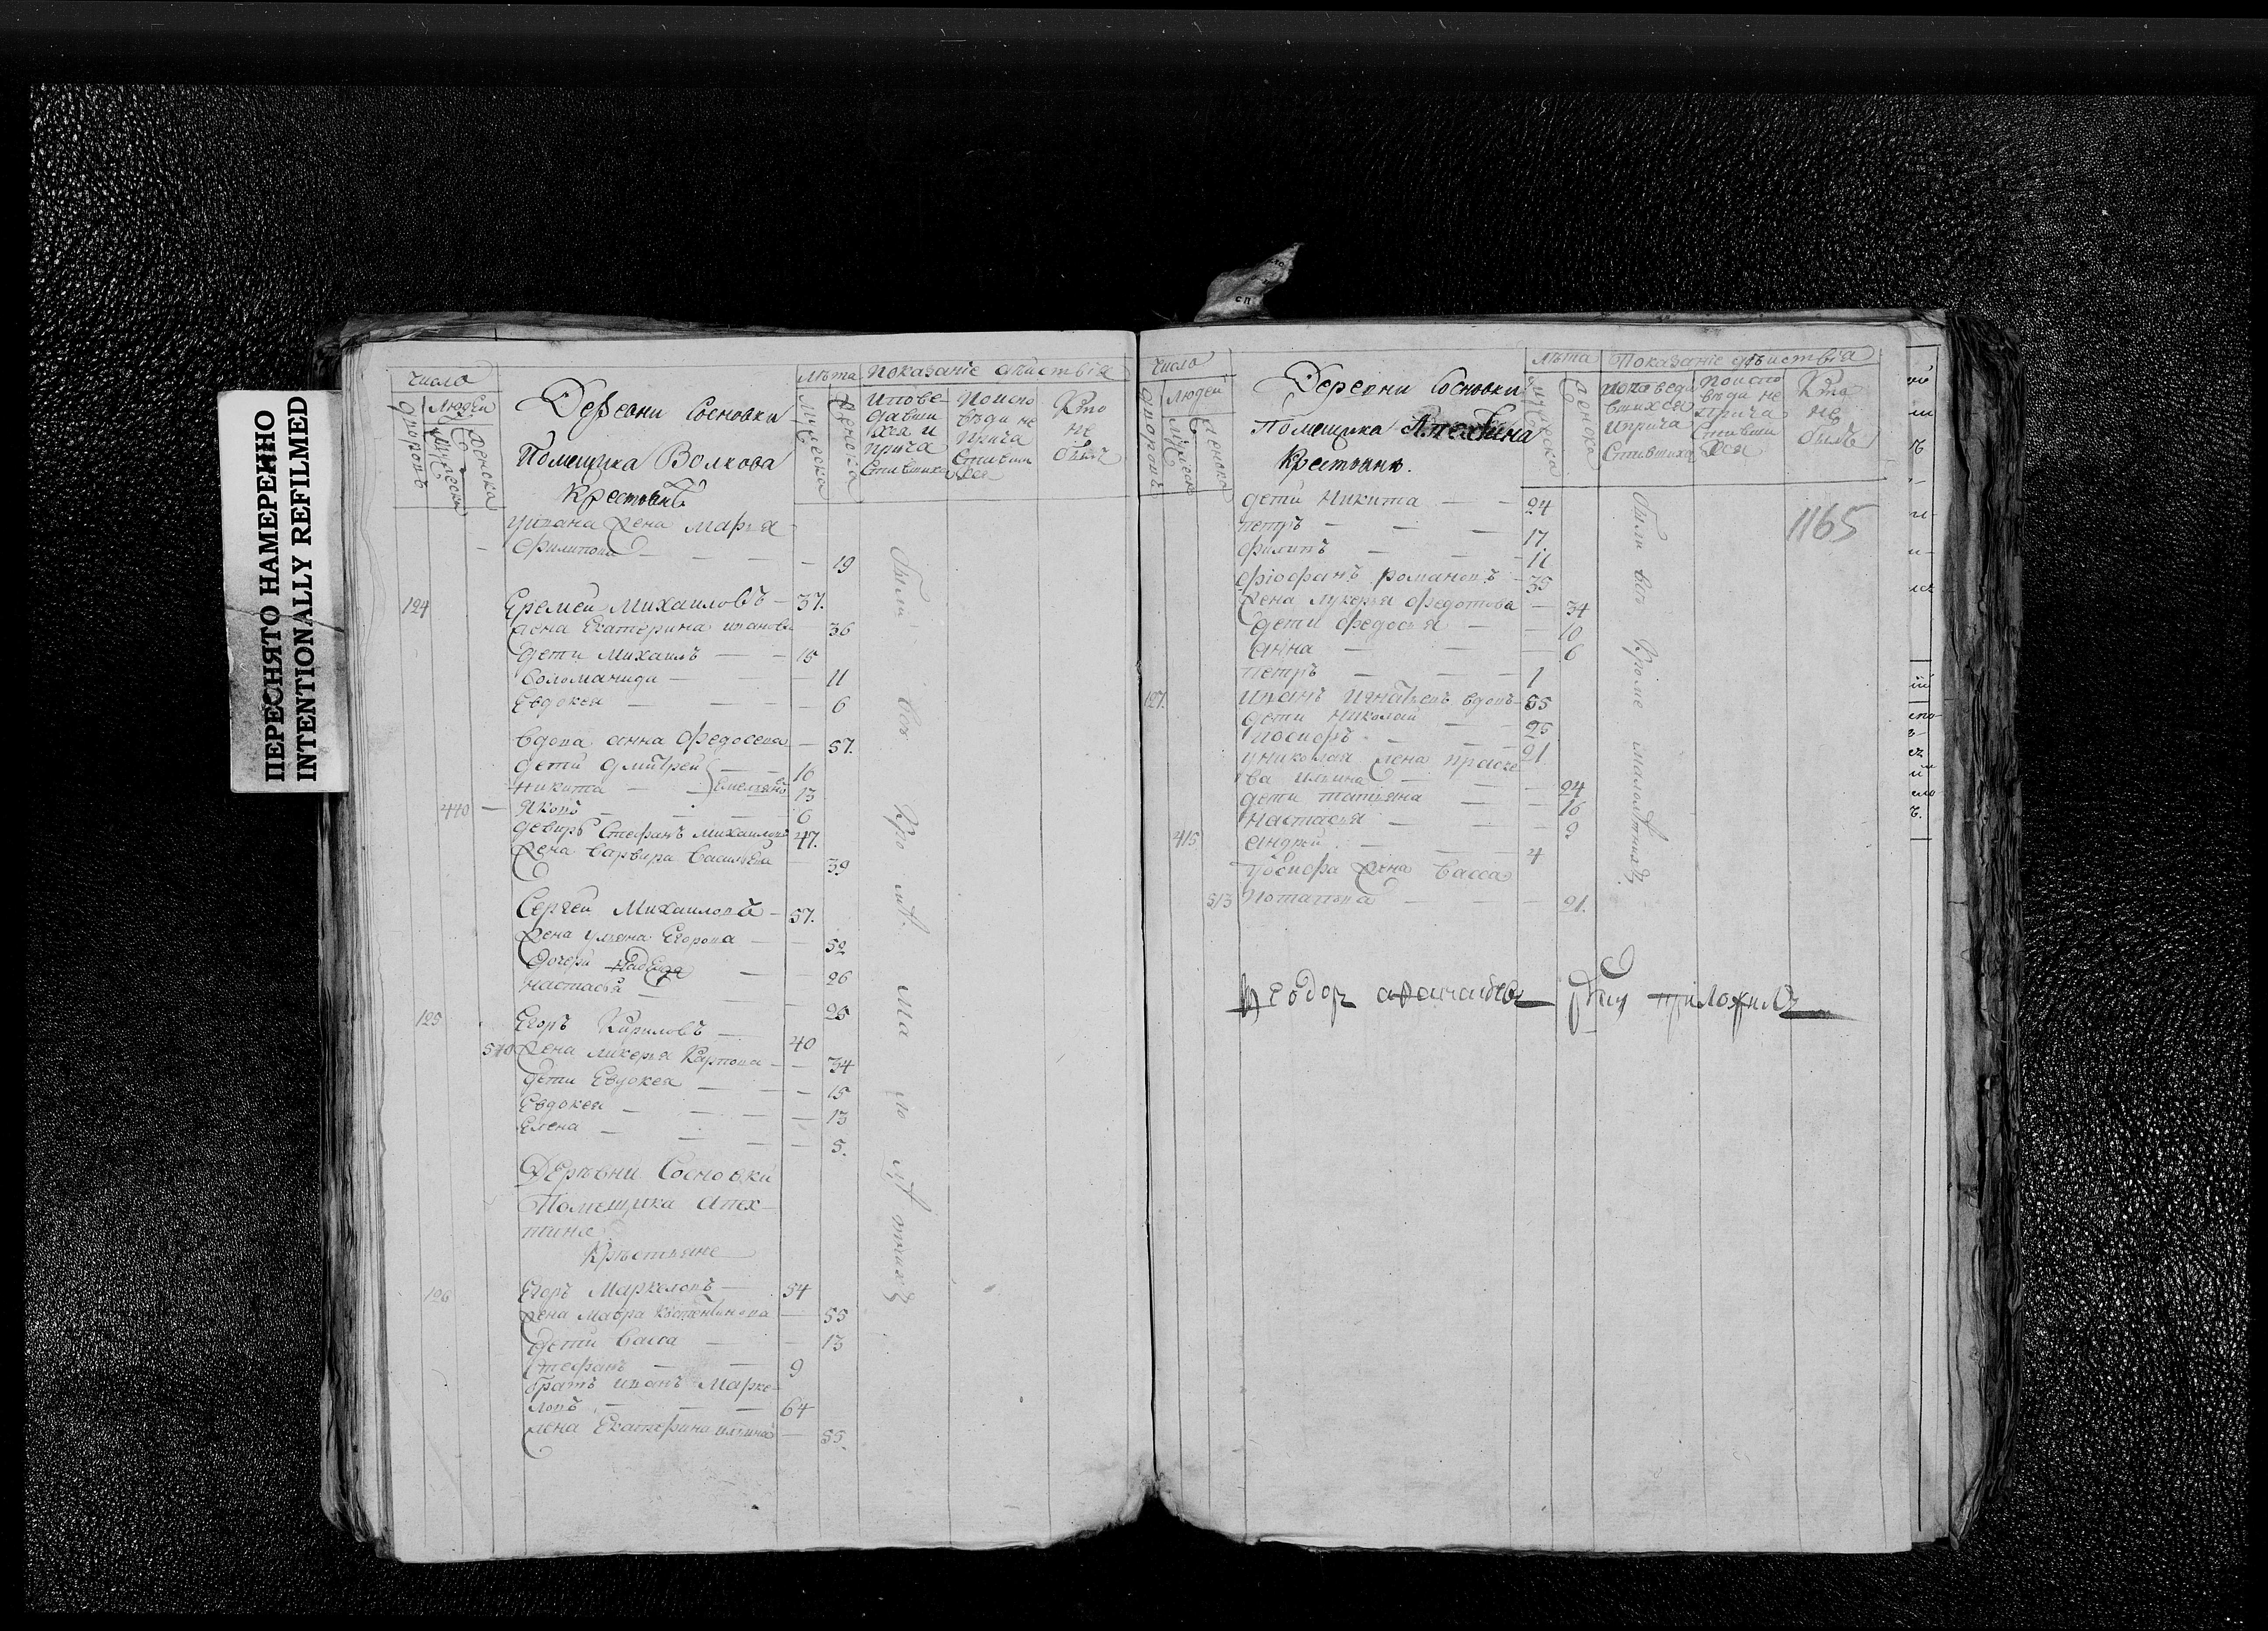 ПЕРЕСНЯТО НАМЕРЕННО
INTENTIONALLY REFILMED
число
людей
дворовъ
мужеска
женска
Деревни Сосновки
Помещика Волкова
Крестьянѣ
лѣта
мужеска
женска
показанiе дѣйствiя
испове
давши
хся и
прича
стившихся
поиспо
вѣди не
прича
стивши
хся
кто
не
былъ
ивана жена марья
филипова — 19
124 Еремей Михаиловъ — 37.
жена Екатерина иванова 36
дети михаилъ — 15
Соломанида — 11
Евдокея — 6
вдова анна федосеева — 57.
дети дмитрей — 16
никита — Емельяновы 13
440 — Яковъ — 6
деверь Стефанъ михаиловъ 47.
жена варвара васильева 39
Сергей Михаиловъ — 57.
жена ульяна Егорова — 52
дочери надежда — 26
настасья — 26
125 Егоръ Кириловъ — 40
510 жена лукерья Карпова — 34
дети Евдокея — 15
Евдокея — 13
Елена — 5.
Деревни Сосновки
Помещика апех
тина
Крестьяне
126 Егоръ Маркеловъ — 54
жена мавра Костентинова — 55
дети васса — 13
Стефанъ — 9
братъ иванъ Марке
ловъ — 64
жена Екатерина ильина — 55.
были все кро мѣ ма ло лѣ тнихъ
число
людей
дворовъ
мужеска
женска
Деревни Сосновки
Помещика Апехтина
Крестьяне.
лѣта
мужеска
женска
Показанiе дѣиствiя
исповеда
вшихся
иприча
стившихся
поиспо
вѣди не
прича
стивши
хся
Кто
не
былъ
1165
дети никита — 24
петръ — 17.
филипъ — 11
фiофанъ романовъ — 35
жена лукерья федотова — 34
дети федосья — 10
анна — 6
петръ — 1
127. иванъ игнатьевъ вдовъ — 55
дети николай — 25
иосифъ — 21
униколая жена праске
ва ильина — 24
дети татьяна — 16
настасья — 9
415 андрей — 4
уосифа жена васса
513 Потапова — 21.
были все кроме малолѣтнихъ
Федор афанасьев руку приложилъ